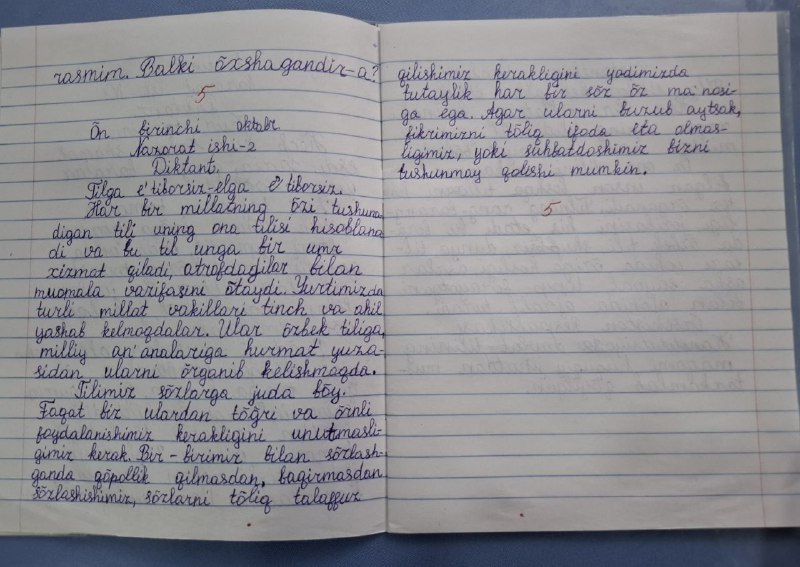 rasmim. Balki õxshagandir-a?
5
Õn birinchi oktabr.
Nazorat ishi-2
Diktant.
Tilga e'tiborsiz-elga e'tiborsiz.
Har bir millatning õzi tushuna
digan tili uning ona tilisi hisoblana
di va bu til unga bir umr
xizmat qiladi, atrofdagilar bilan
muomala vazifasini õtaydi. Yurtimizda
turli millat vakillari tinch va ahil
yashab kelmoqdalar. Ular õzbek tiliga,
milliy an'analariga hurmat yuza-
sidan ularni õrganib kelishmoqda.
Tilimiz sõzlarga juda bõy.
Faqat biz ulardan tõğri va õrnli
foydalanishimiz kerakligini unutmasli-
gimiz kerak. Bir-birimiz bilan sõzlash-
ganda qõpollik qilmasdan, baqirmasdan
sõzlashishimiz, sõzlarni tõliq talaffuz
qilishimiz kerakligini yodimizda
tutaylik har bir sõz õz ma'nosi-
ga ega. Agar ularni buzub aytsak,
fikrimizni tõliq ifoda eta olmas-
ligimiz, yoki suhbatdoshimiz bizni
tushunmay qolishi mumkin.
5